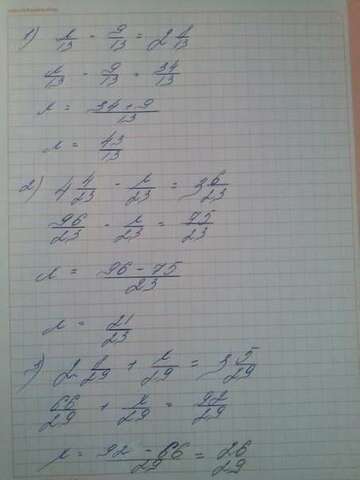 1) x/13 - 9/13 = 2 8/13
x/13 - 9/13 = 34/13
x = (34+9)/13
x = 43/13
2) 4 4/23 - x/23 = 3 6/23
96/23 - x/23 = 75/23
x = (96-75)/23
x = 21/23
3) 2 8/29 + x/29 = 3 5/29
66/29 + x/29 = 92/29
x = (92-66)/29 = 26/29